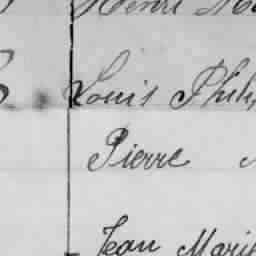 Henri
Louis Phili
Pierre
Jean Marie